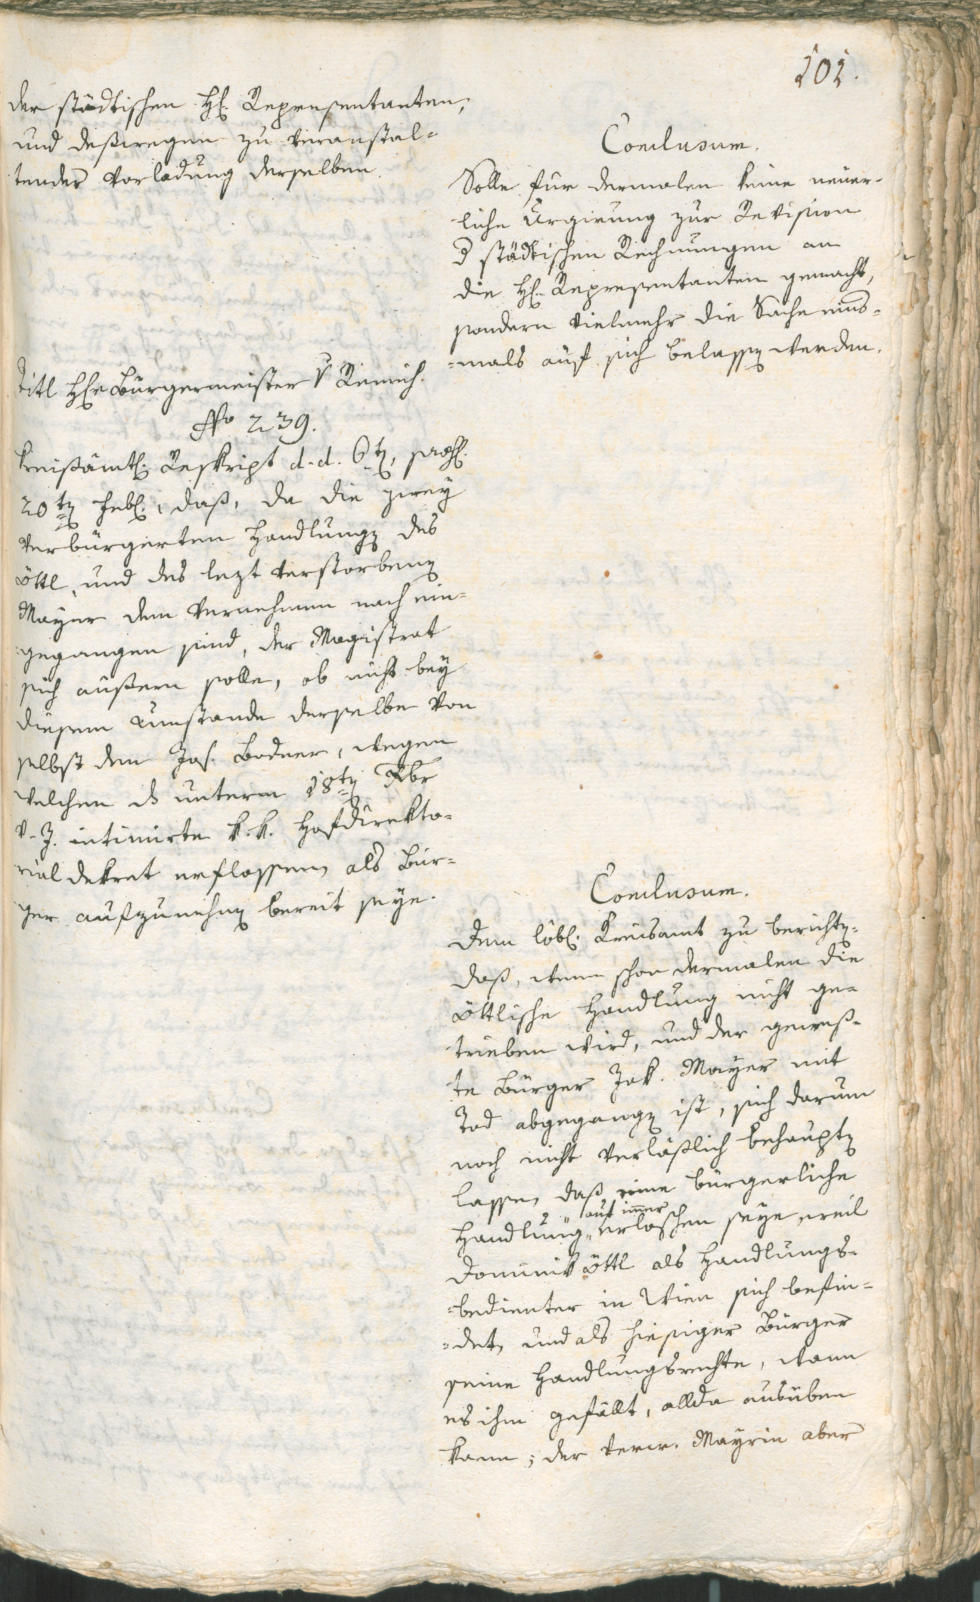 101.
der städtischen H. Representanten,
und deßwegen zu veranstal-
tender Vorladung derselben.
Conclusum.
Solle für dermalen keine neuer-
liche Urgirung zur Revision
d städtischen Rechnungen an
die H. Representanten gemacht,
sondern vielmehr die Sache
-mals auf sich belassen werden.
Titl H Bürgermeister v
No 239.
Kreißämtl. Reskript d. d. 6ten,
20ten, daß, da die zwey
verbürgerten Handlungen des
Öttl, und des lezt verstorbenen
Mayer dem Vernehmen nach ein-
gegangen sind, der Magistrat
sich äußern solle, ob nicht bey
diesem Umstande derselbe von
selbst den Jos. Bodner, wegen
welchen unterm 18ten
v. J. intimirte k. k. Hofdirekto-
rial dekret erflossen, als Bür-
ger aufzunehmen bereit seye.
Conclusum.
Dem löbl. Kreisamt zu berichten:
daß, wenn schon dermalen die
Öttlische Handlung nicht ge-
trieben wird, und der geweß-
te Bürger Jak. Mayer mit
Tod abgegangen ist, sich darum
noch nicht verläßlich behaupten
lassen, daß eine bürgerliche
auf immer
Handlung erloschen seye, weil
Dominik Öttl als Handlungs-
-bedienter in Wien sich befin-
-det, und als hiesiger Bürger
seine Handlungsrechte, wann
es ihm gefällt, allda ausüben
kann; der verw. Mayrin aber